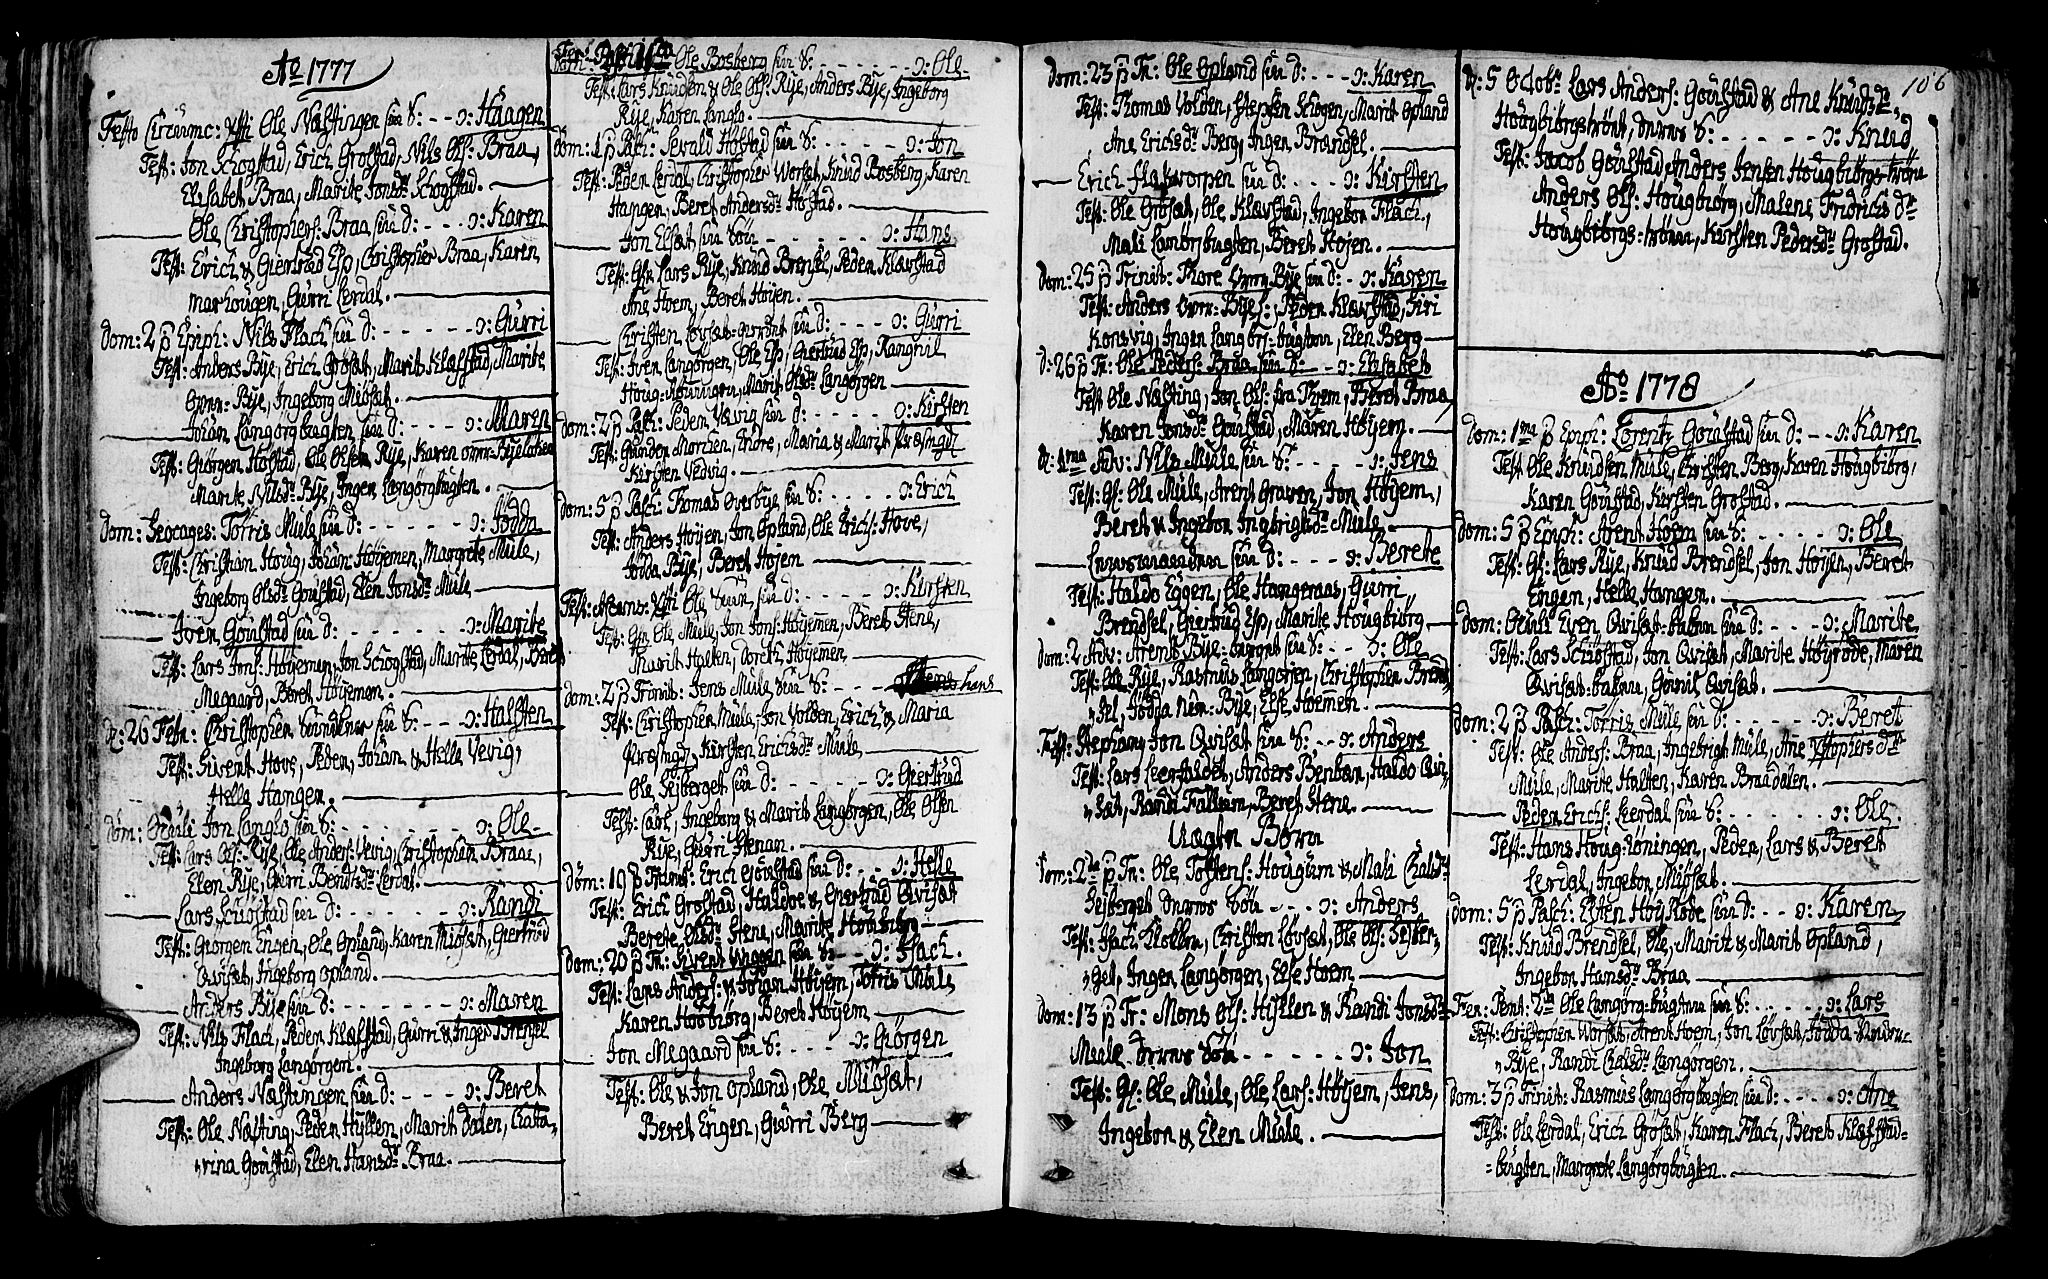 Ao 1777
Festo Circumc: Xsti Ole Næstingen sin S: - - ɔ: Haagen
Test: Jon Schogstad, Erich Grostad, Nils Ols: Braa,
Elisabet Braa, Marite Jonsdr Schogstad.
Ole Christophers: Braa sin d: - - - ɔ: Karen
Test: Erich & Giertrud Esp, Christopher Braa, Karen
Marhougen, Gurri Lerdal.
Dom: 2 p Epiph: Nils Flach sin d: - - - - - ɔ: Gurri
Test: Anders Bye, Erich Grosæt, Marit Klæfstad, Marite
Bye, Ingeborg Miøsæt.
Johan Langørgbugten sin d: - - - ɔ: Maren
Test: Giørgen Høstad, Ole Olsen Rye, Karen
Marite Nilsdr Bye, Ingen Langørgbugten.
Dom: Sexages: Torris Mule sin d: - - - - - ɔ: Jødda
Test: Christian Houg, Johan Høiemen, Margrete Mule,
Ingeborg Olsdr Goulstad, Elen Jonsdr Mule
Iver Goulstad sin d: - - - - - - ɔ: Marite
Test: Lars Jons: Høyemen, Jon Schogstad, Marite Lerdal, Beret
Megaard, Beret Høyemen.
d: 26 Febr: Christopher sin S: - - ɔ: Halsten
Test: Sivert Hove, Peder, Johan & Helle Vevig,
Helle Hangen.
Dom: Oculi Jon Langlo sin S: - - - - - - ɔ: Ole
Test: Lars Ols: Rye, Ole Anders: Vevig, Christopher Braae,
Elen Rye, Gurri Bendtsdr Lerdal.
Lars Schiøstad sin d: - - - - - - ɔ: Randi
Test: Georgen Engen, Ole Opland, Karen Miøsæt, Giertrud
Qvisæt, Ingeborg Opland.
Anders Bye sin d: - - - - - - ɔ: Maren
Test: Nils Flach, Peder Klæfstad, Gurri & Inger Brensel
Ingeborg Langørgen.
Anders Næstingen sin d: - - - ɔ: Beret
Test: Ole Næsting, Peder Hyllen, Marit Dalen, Catha-
rina Goulstad, Elen Hansdr Braa.
Ole Bosberg sin S: - - - - - - ɔ: Ole
Test: Lars Knudsen & Ole Ols: Rye, Anders Bye, Ingeborg
Rye, Karen Langlo.
Dom: 1 p Pasch: Sevald Høstad sin S: - - - - - ɔ: Jon
Test: Peder Lerdal, Christopher Worsæt, Knud Bosberg, Karen
Hangen, Beret Andersdr Høstad.
Jon Elsæt sin Søn - - - - - - ɔ: Hans
Test: Lars Rye, Knud Brensel, Peder Klæfstad
Ane Hoem, Beret Høyen.
Christen Løvsæt sin d: - - - - ɔ: Gurri
Test: Iver Langørgen, Ole Esp, Giertrud Esp, Rangnil
Houg, Marit Olsdr Langørgen
Dom: 2 p Pasch: Peder Vevig sin d: - - - - ɔ: Kirsten
Test: Morten, Endre, Maria & Marit Præsingdr
Kirsten Vevig.
Dom: 5 p Pasch: Thomas Overbye sin S: - - - - ɔ: Erich
Test: Anders Høyen, Jon Opland, Ole Erichs: Hove,
Jødda Bye, Beret Høyem
Fest: Ascens: Xsti Ole sin d: - - - ɔ: Kirsten
Test: Ole Mule, Jon Jons: Høyemen, Beret Stene,
Marit Halten, Doreth Høyemen.
Dom: 2 p Trinit: Jens Mule sin S: - - - hans
Test: Christopher Mule, Jon Volden, Erich & Maria
Præsingdr, Kirsten Erichsdr Mule.
Ole Sejberget sin d: - - - - - ɔ: Giertrud
Test: Carl, Ingeborg & Marit Langørgen, Ole Olsen
Rye, Gurri Stenan.
Dom: 19 p Trinit: Erich Goulstad sin d: - - ɔ: Helle
Test: Erich Grostad, Haldoe & Giertrud Qvisæt
Berete Olsdr Stene, Marite Hougbiørg
Dom: 20 p Tr: Sivert Uvggen sin S: - - ɔ: Isach.
Test: Lars Anders: & Johan Høyem, Torris Mule,
Karen Hougbiørg, Beret Høyem
Jon Megaard sin S: - - - ɔ: Giørgen
Test: Ole & Jon Opland, Ole Miøsæt,
Beret Engen, Giurri Berg
Dom: 23 p Tr: Ole Opland sin d: - - - ɔ: Karen
Test: Thomas Volden, Steffen Schogen, Marit Opland
Ane Erichsdr Berg, Ingen Brandsel.
Erich Flakvorpen sin d: - - - ɔ: Kirsten
Test: Ole Grosæt, Ole Klæfstad, Ingebor Flach,
Mali Langørgbugten, Beret Høien.
Dom: 25 p Trinit: Tore Bye sin d: - ɔ: Karen
Test: Anders Bye: Peder Klæfstad, Siri
Konsvig, Ingen Langørgbugten, Elen Berg
D: 26 p Tr: Ole Peders: Braa sin d: - - ɔ: Elisabet
Test: Ole Næsting, Jon Ols: fra Trem, Beret Braa,
Karen Jonsdr Goulstad, Maren Høyem.
D: 1ma Adv: Nils Mule sin S: - - - - ɔ: Jens
Test: Ole Mule, Arent Graven, Jon Høyem,
Beret & Ingebor Ingbrigtsdr Mule.
sin d: - - - ɔ: Berete
Test: Haldo Eggen, Ole Hangeraas, Gurri
Brendsel, Giertrud Esp, Marite Hougbiørg
Dom: 2 Adv: Arent Bye sin S: - - ɔ: Ole
Test: Ole Rye, Rasmus Langørgen, Christopher Brend-
sel, Jødda Bye, Else Hoemen.
Fest: Stephani Jon Qvisæt sin S: - - ɔ: Anders
Test: Lars Leerfaldet, Anders Benban, Haldo Qvi-
sæt, Randi Fallum, Beret Stene.
Uægte Børn
Dom: 2 p Tr: Ole Tostens: Hougum & Mali Carlsdr
Sejberget deres Søn - - - ɔ: Anders
Test: Isach Klokken, Christen Løvsæt, Ole Ols: Sejber-
get, Ingen Langørgen, Else Hoem
Dom: 13 p Tr: Mons Ols: Hyllen & Randi Jonsdr
Mule deres Søn - - - - - ɔ: Jon
Test: Ole Mule, Ole Lars: Høyem, Jens,
Ingebor & Elen Mule.
106
d: 5 Octobr Lars Anders: Goulstad & Ane Knudsdr
Hougbiørgstrønt, deres S: - - - - - ɔ: Knud
Test: Jacob Goulstad, Anders Jensen Hougbiørgstrønt
Anders Ols: Hougbiørg, Malene Fridrichsdr
Hougbiørgs-trønn, Kirsten Pedersdr Grostad.
Ao 1778
Dom: 1ma p Epiph: Lorentz Goulstad sin d: - - ɔ: Karen
Test: Ole Knudsen Mule, Christen Berg, Karen Hougbiørg,
Karen Goulstad, Kirsten Grostad.
Dom: 5 p Epiph: Arent Hoem sin S: - - - - ɔ: Ole
Test: Lars Rye, Knud Brendsel, Jon Høyen, Beret
Engen, Helle Hangen.
Dom: Oculi Even Qvisæt-bakken sin d: - - - ɔ: Marite
Test: Lars Schiøstad, Jon Qvisæt, Marite Høyrøde, Maren
Qvisæt-bakken, Gonnil Qvisæt.
Dom: 2 p Pasch: Torris Mule sin d: - - - - - ɔ: Beret
Test: Ole Anders: Braa, Ingebrigt Mule, Ane Xstophersdr
Mule, Marite Halten, Karen Braadalen.
Peder Erichs: Leerdal sin S: - - - - - - ɔ: Ole.
Test: Hans Houg, Peder, Lars & Beret
Lerdal, Ingebor Miøsæt.
Dom: 5 p Pasch: Esten Høyrøde sin d: - - ɔ: Karen
Test: Knud Brendsel, Ole, Marit & Marit Opland,
Ingebor Hansdr Braa
Fer: Pent: 2da Ole Langørg-bugten sin S: - - - - ɔ: Lars
Test: Christopher Worsæt, Arent Hoem, Jon Løvsæt, Jødda
Bye, Randi Carlsdr Langørgen.
Dom: 3 p Trinit: Rasmus Langørgbugten sin d: - - - - ɔ: Ane
Test: Ole Lerdal, Erich Grosæt, Karen Flach, Beret Klæfstad-
bugten, Margrete Langørgbugten.